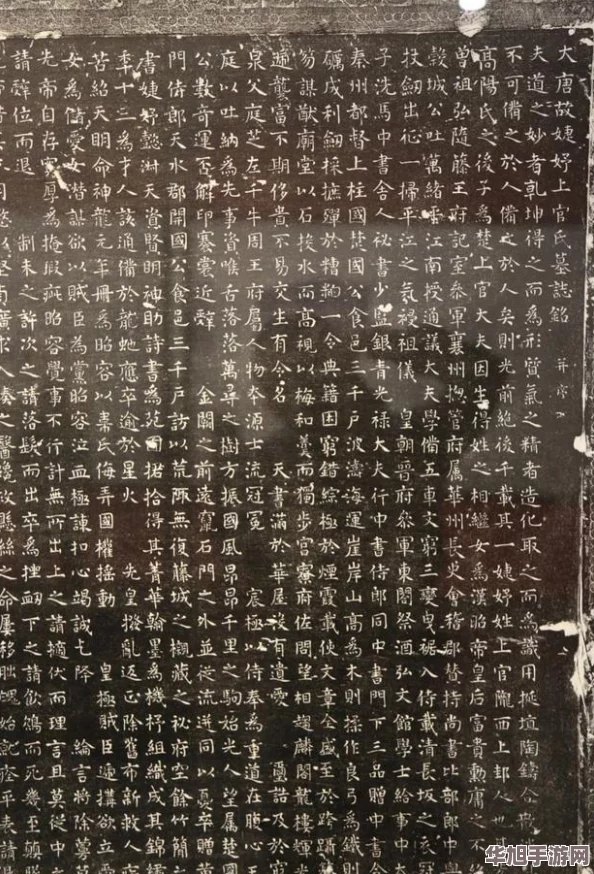 大唐故婕妤上官氏墓誌銘 并序
夫道之妙者乾坤得之而爲形質氣之精者造化取之而爲識用挻埴陶鑄合散
不可備之於人備之於人矣則光前絕後千載其一婕妤姓上官隴西上邽人也其
高陽氏之後子爲楚上官大夫因生得姓之相繼女爲漢昭帝皇后富貴勳庸之不
曾祖弘隨藤王府記室參軍襄州揔管府屬華州長史會稽郡贊持尚書比部郎中與
轂城公吐萬緒平江南授通議大夫學備五車文窮三變曳裾入侍載清長坂之衣冠
杖劒出征一掃平江之氛祲祖儀 皇朝晉府參軍東閤祭酒弘文館學士給事中太
子洗馬中書舍人秘書少監銀青光祿大夫行中書侍郎同中書門下三品贈中書令
秦州都督上柱國楚國公食邑三千戶波濤海運崖岸山高爲木則操作良弓爲鐵則
礪成利劒採摭殫於糟粕一令典籍困窮錯綜極於煙霞載使文章全盛至於跨躡簪
笏謀猷廟堂以石投水而高視以梅和羹而獨步官寮府佐問望相趨麟閣龍樓輝光
遞襲富不期侈貴不易交生有令名 天書滿於華屋沒有遺愛 璽誥及於窮
泉父庭芝左千牛周王府屬人物本源士流冠冕 宸極以侍奉爲重道在腹心王
庭以吐納爲先事資喉舌落落萬尋之樹方振國風昂昂千里之駒始光人望屬楚國
公數奇運否解印褰裳近辭 金闕之前遠竄石門之外並從流迸同以憂卒贈黃
門侍郎天水郡開國公食邑三千戶訪以荒陬無復藤城之櫬藏之秘府空餘竹簡之
書婕妤懿淑天資賢明神助詩書爲苑囿捃拾得其菁華翰墨爲機杼組織成其錦繡
年十三爲才人該通備於龍蛇應卒逾於星火 先皇撥亂返正除舊布新救人疾
苦紹天明命神龍元年冊爲昭容以韋氏侮弄國權搖動 皇極賊臣遞構欲立愛
女爲儲愛女潛謀欲以賊臣爲黨昭容泣血極諫扣心竭誠乞降 綸言將除蔓
先帝自存寬厚爲掩瑕疵昭容覺事不行計無所出上之請擿伏而理言且莫從中之
請辭位而退 制未之許次之請落髮而出卒爲挫衂下之請飲鴆而死幾至顛墜
慜以堅貞廣求入腠之醫纔救懸絲之命屢移朏魄始就痊平表請
华旭手游网